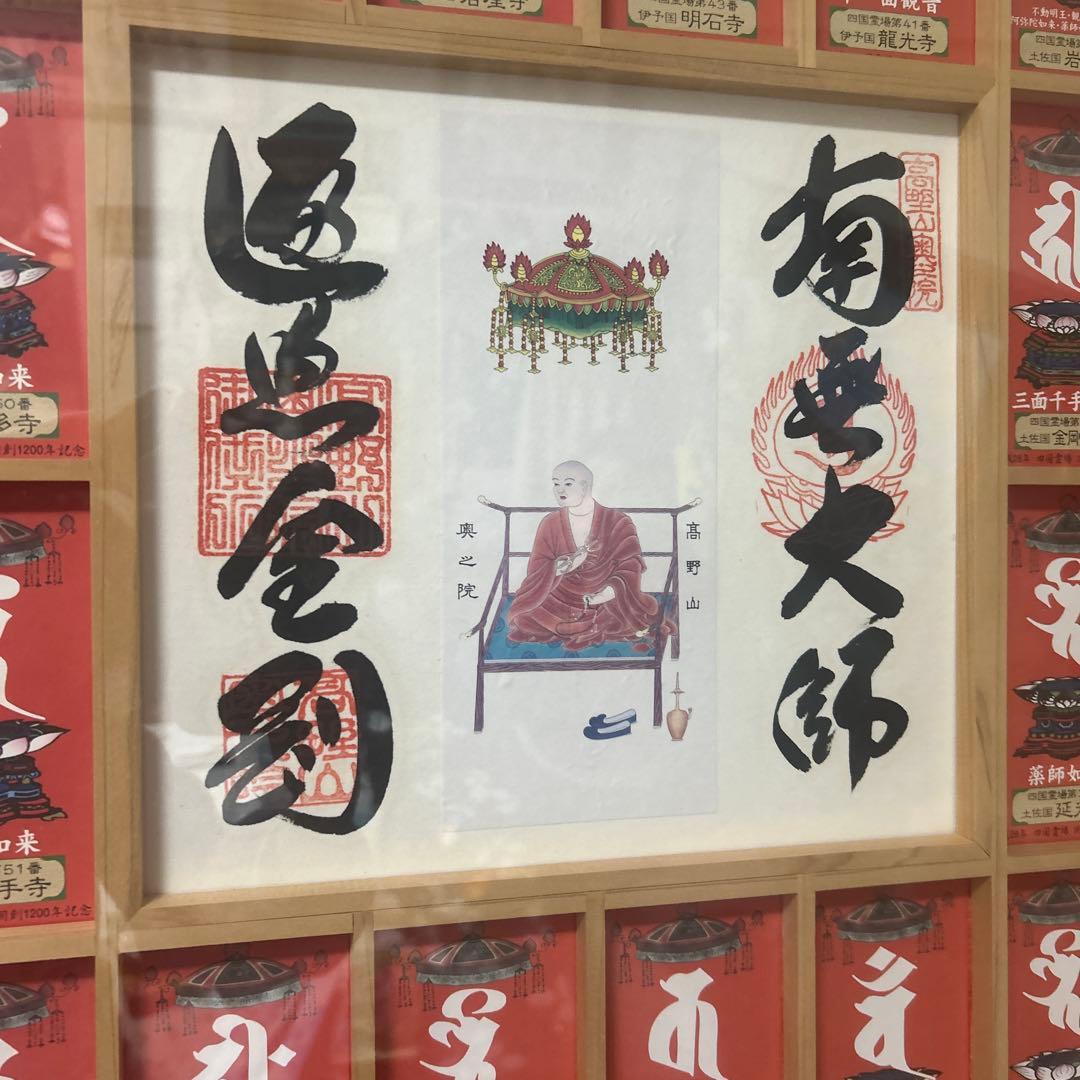 四国霊場第43番
伊予国 明石寺
面観音
四国霊場第41番
伊予国 龍光寺
不動明王・観
阿弥陀如来・薬師
四国霊場第
土佐国 岩
高野山奥之院
南無大師
遍照金剛
高野山
奥之院
如来
50番
多寺
創1200年記念
三面千手
四国霊場第
土佐国 金剛
如来
51番
手寺
開創1200年記念
薬師如
四国霊場第
土佐国 延